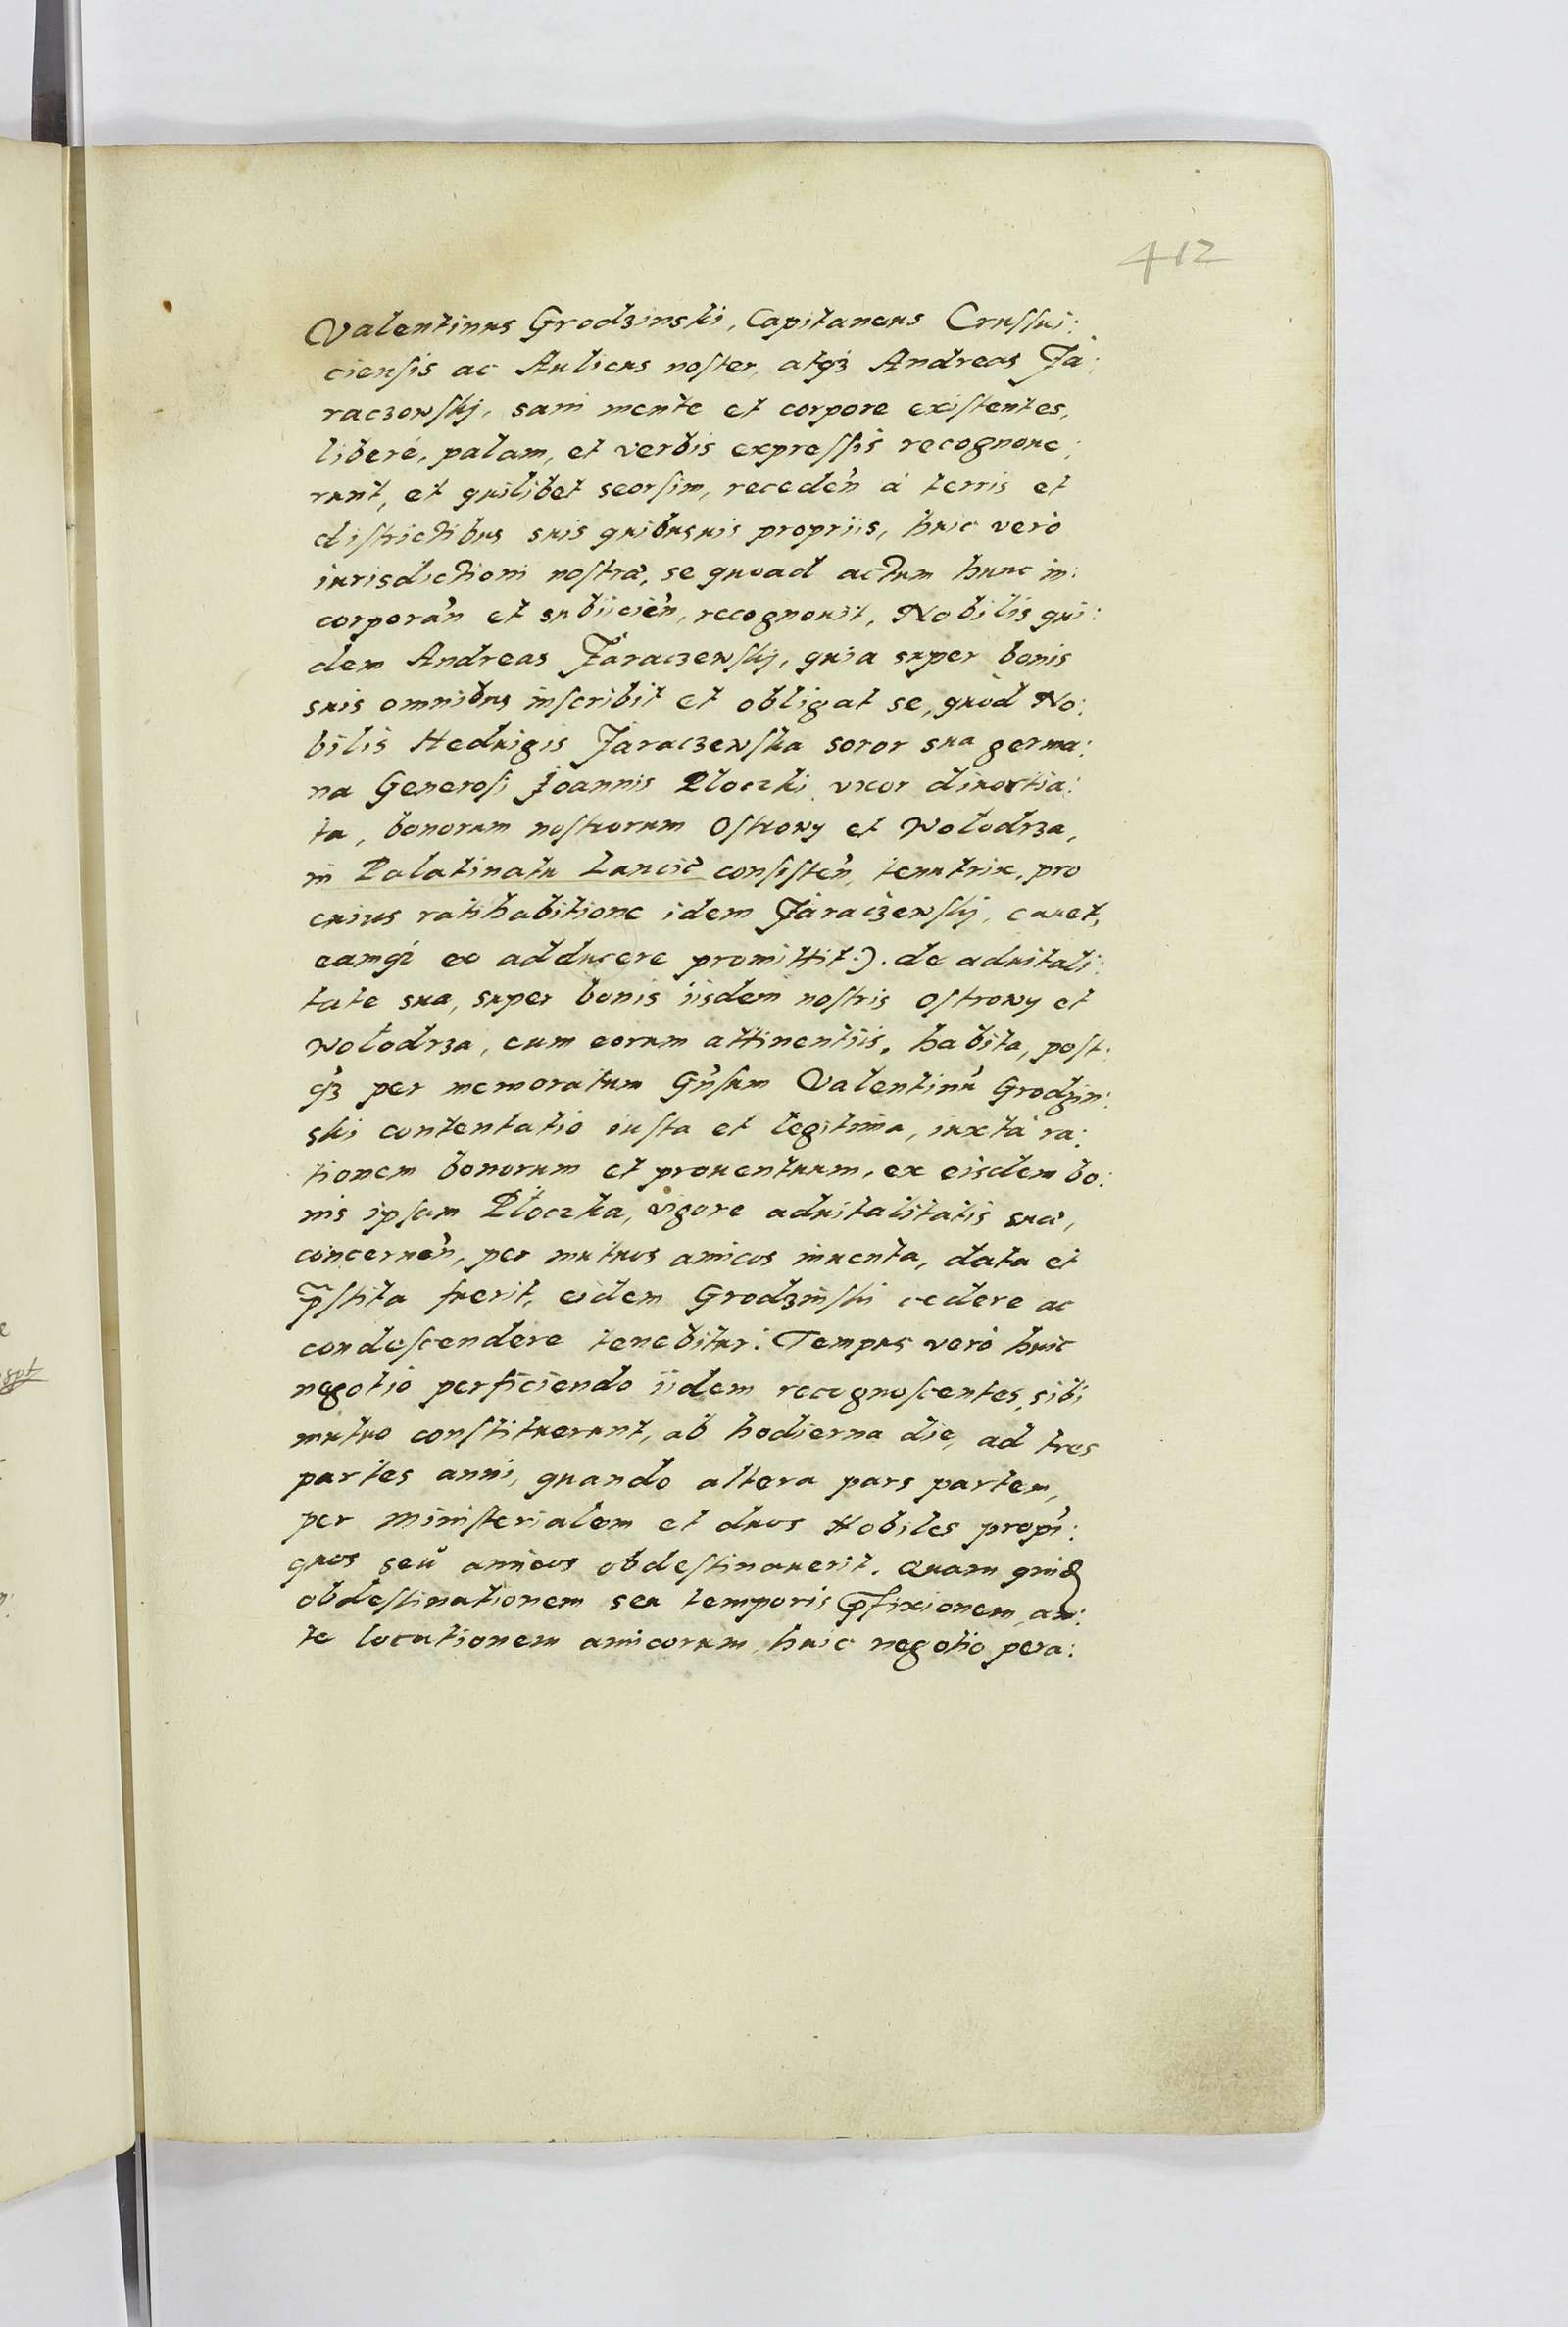 412
Valentinus Grodzinski, Capitaneus Crussui:
ciensis ac Aulicus noster, atqȝ Andreas Ja:
raczowskj, sani mente et corpore existentes,
liberé, palam, et verbis expressis recognoue:
runt, et quilibet seorsim, receden̄ á terris et
districtibus suis quibusuis propriis, huic veró
iurisdictioni nostræ, se quoad actum hunc in:
corporan̄ et subiicien̄, recognouit, Nobilis qui:
dem Andreas Jaraczewskj, quia super bonis
suis omnibus inscribit et obligat se, quòd No:
bilis Heduigis Jaraczewska soror sua germa:
na Generosi Joannis Płoczki vxor diuortia:
ta, bonorum nostrorum Ostrowy et Wołodrza,
in Palatinatu Lancic̄ consisten̄, tenutrix, pro
cuius ratihabitione idem Jaraczewskj, cauet,
eamqȝ eo adducere promittit.). de aduitali:
tate sua, super bonis iisdem nostris Ostrowy et
Wołodrza, cum eorum attinentiis, habita, post:
qȝ per memoratum Gn̄sum Valentinū Grodzin:
ski contentatio iusta et legitima, iuxtà ra:
tionem bonorum et prouentuum, ex eisdem bo:
nis ipsam Płoczka, vigore aduitalitatis suæ,
concernen̄, per mutuos amicos inuenta, data et
p̄stita fuerit, eidem Grodzinski cedere ac
condescendere tenebitur. Tempus veró huic
negotio perficiendo iidem recognoscentes, sibi
mutuo constituerunt, ab hodierna die, ad tres
partes anni, quando altera pars partem,
per Ministerialem et duos Nobiles propin̄:
quos seu amicos obdestinauerit. Quam quid
obdestinationem seu temporis p̄fixionem, an:
te locationem amicorum, huic negotio pera: